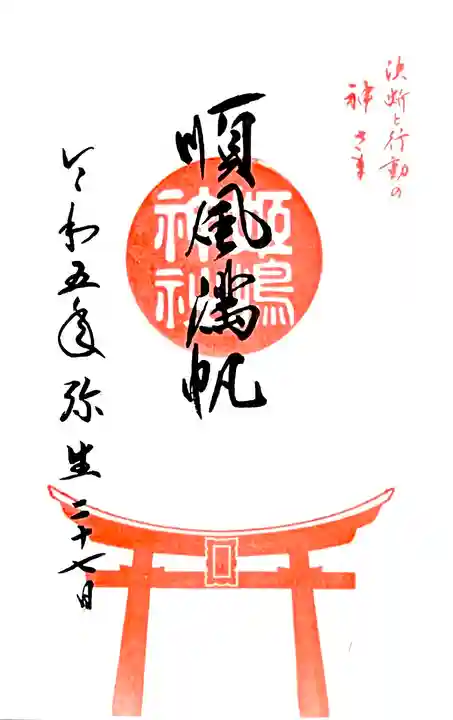 決断と行動の
神さま
順風満帆
姫嶋
神社
令和五年弥生二十七日